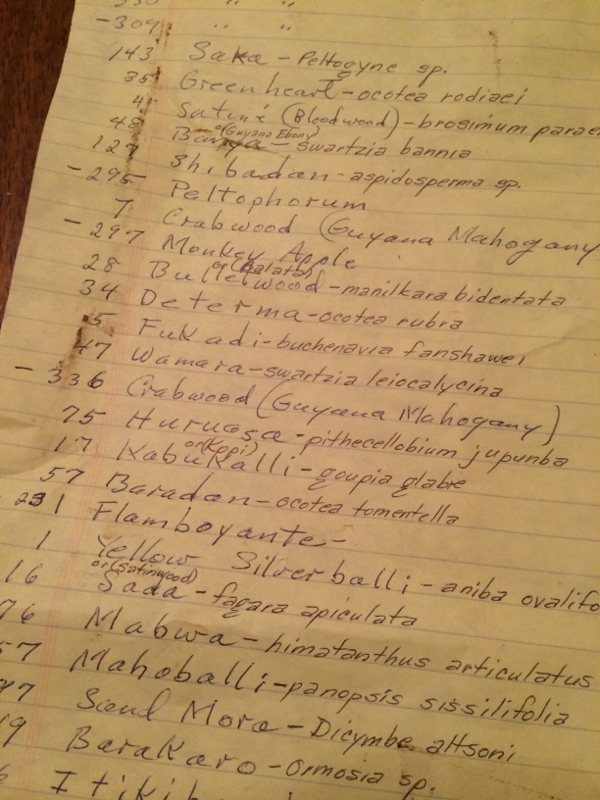 -309 " "
143 Saka - Peltogyne sp.
35 Greenheart - ocotea rodiaei
4 Satiné (Bloodwood) - brosimum parae
48 Banya - swartzia bannia
or (Guyana Ebony)
127 Shibadan - aspidosperma sp.
-295 Peltophorum
7 Crabwood (Guyana Mahogany
-297 Monkey Apple
28 Bulletwood - manilkara bidentata
or (balata)
34 Determa - ocotea rubra
5 Fukadi - buchenavia fanshawei
47 Wamara - swartzia leiocalycina
-336 Crabwood (Guyana Mahogany)
75 Huruasa - pithecellobium jupunba
17 Kabukalli - goupia glabre
or (Kopi)
57 Baradan - ocotea tomentella
231 Flamboyante -
1 Yellow Silverballi - aniba ovalifo
16 Sada - fagara apiculata
or (satinwood)
76 Mabwa - himatanthus articulatus
57 Mahoballi - panopsis sissilifolia
Soul Mora - Dicymbe altsoni
Barakaro - ormosia sp.